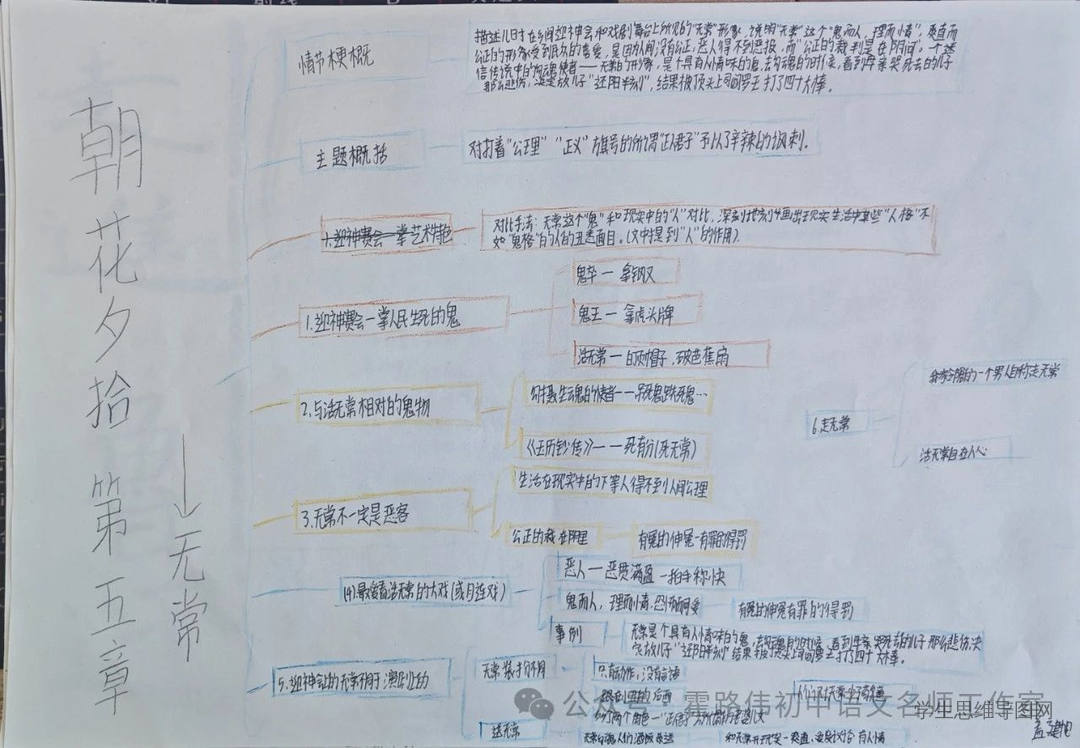 朝花夕拾 第五章
无常
情节梗概
描述儿时在乡间迎神会和戏剧舞台上所见的“无常”形象,说明“无常”这个“鬼而人,理而情”,爽直而
公正的形象受到民众的喜爱,是因为人间没有公正,恶人得不到恶报,而“公正的裁判是在阴间”,一个迷
信传说中的勾魂使者——无常的形象,是个具有人情味的鬼,去勾魂的时候,看到母亲哭死去的儿子
那么悲伤,决定放儿子“还阳半刻”,结果被顶头上司阎罗王打了四十大棒。
主题概括
对打着“公理”“正义”旗号的所谓“正人君子”予以了辛辣的讽刺。
艺术特色
对比手法:无常这个“鬼”和现实中的“人”对比,深刻地刻画出现实生活中某些“人格”不
如“鬼格”的人的丑恶面目。(文中提到“人”的作用)
1.迎神赛会—掌人民生死的鬼
鬼卒—拿钢叉
鬼王—拿虎头牌
活无常—白帽子,破芭蕉扇
2.与活无常相对的鬼物
勾摄生魂的使者——
《玉历钞传》——死有分(死无常)
3.无常不一定是恶客
生活在现实中的下等人得不到人间公理
公正的裁
有冤的伸冤—有罪的得罚
(4)最爱看活无常的大戏(或目连戏)
恶人—恶贯满盈—拍手称快
鬼而人,理而情,
有冤的伸冤有罪的得罚
事例
无常是个具有人情味的鬼,去勾魂的时候,看到母亲哭死去的儿子那么悲伤,决
定放儿子“还阳半刻”结果被顶头上司阎罗王打了四十大棒。
5.迎神会的无常不同于演剧的
无常装扮不同
只有动作,没有言语
送无常
6.走无常
活无常
公众号 · 霍路伟初中语文名师工作室
学生思维导图网